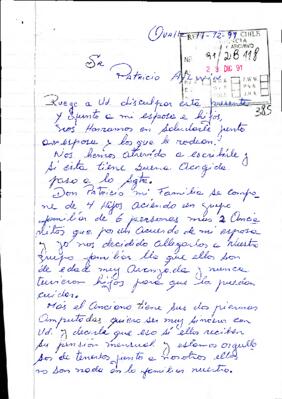 Ovalle 11-12-91
CHILE
ARCHIVO
NR 91/28118
23 DIC 91
Sr
Patricio Aylwin
385
Ruego a Ud disculpar esta presente
y junto a mi esposa e hijos,
nos honramos en saludarle junto
a esposa y lo que le rodean.
Nos hemos atrevido a escribirle y
si esta tiene buena acogida
paso a lo sgte.
Don Patricio mi familia se compo
ne de 4 hijos aciendo un grupo
familiar de 6 personas mas 2 Ancia
nitos que por un acuerdo de mi esposa
y yo nos decidido allegarlos a nuestro
grupo familiar. Ya que ellos son
de edad muy avanzada y nunca
tuvieron hijos para que la puedan
cuidar.
Mas el anciano tiene sus dos piernas
amputadas quiero ser muy sincero con
Ud. y decirle que eso si ellos reciben
su pensión mensual y estamos orgullo
sos de tenerlos junto a nosotros ellos
no son nada en lo familiar nuestro.